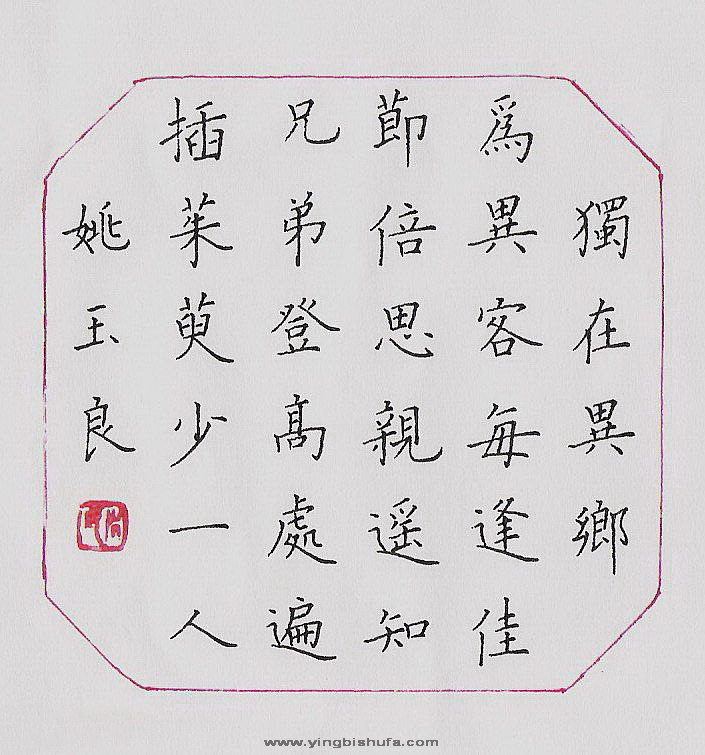 獨在異鄉
為異客每逢佳
節倍思親遥知
兄弟登髙處遍
插茱萸少一人
姚玉良
www.yingbishufa.com